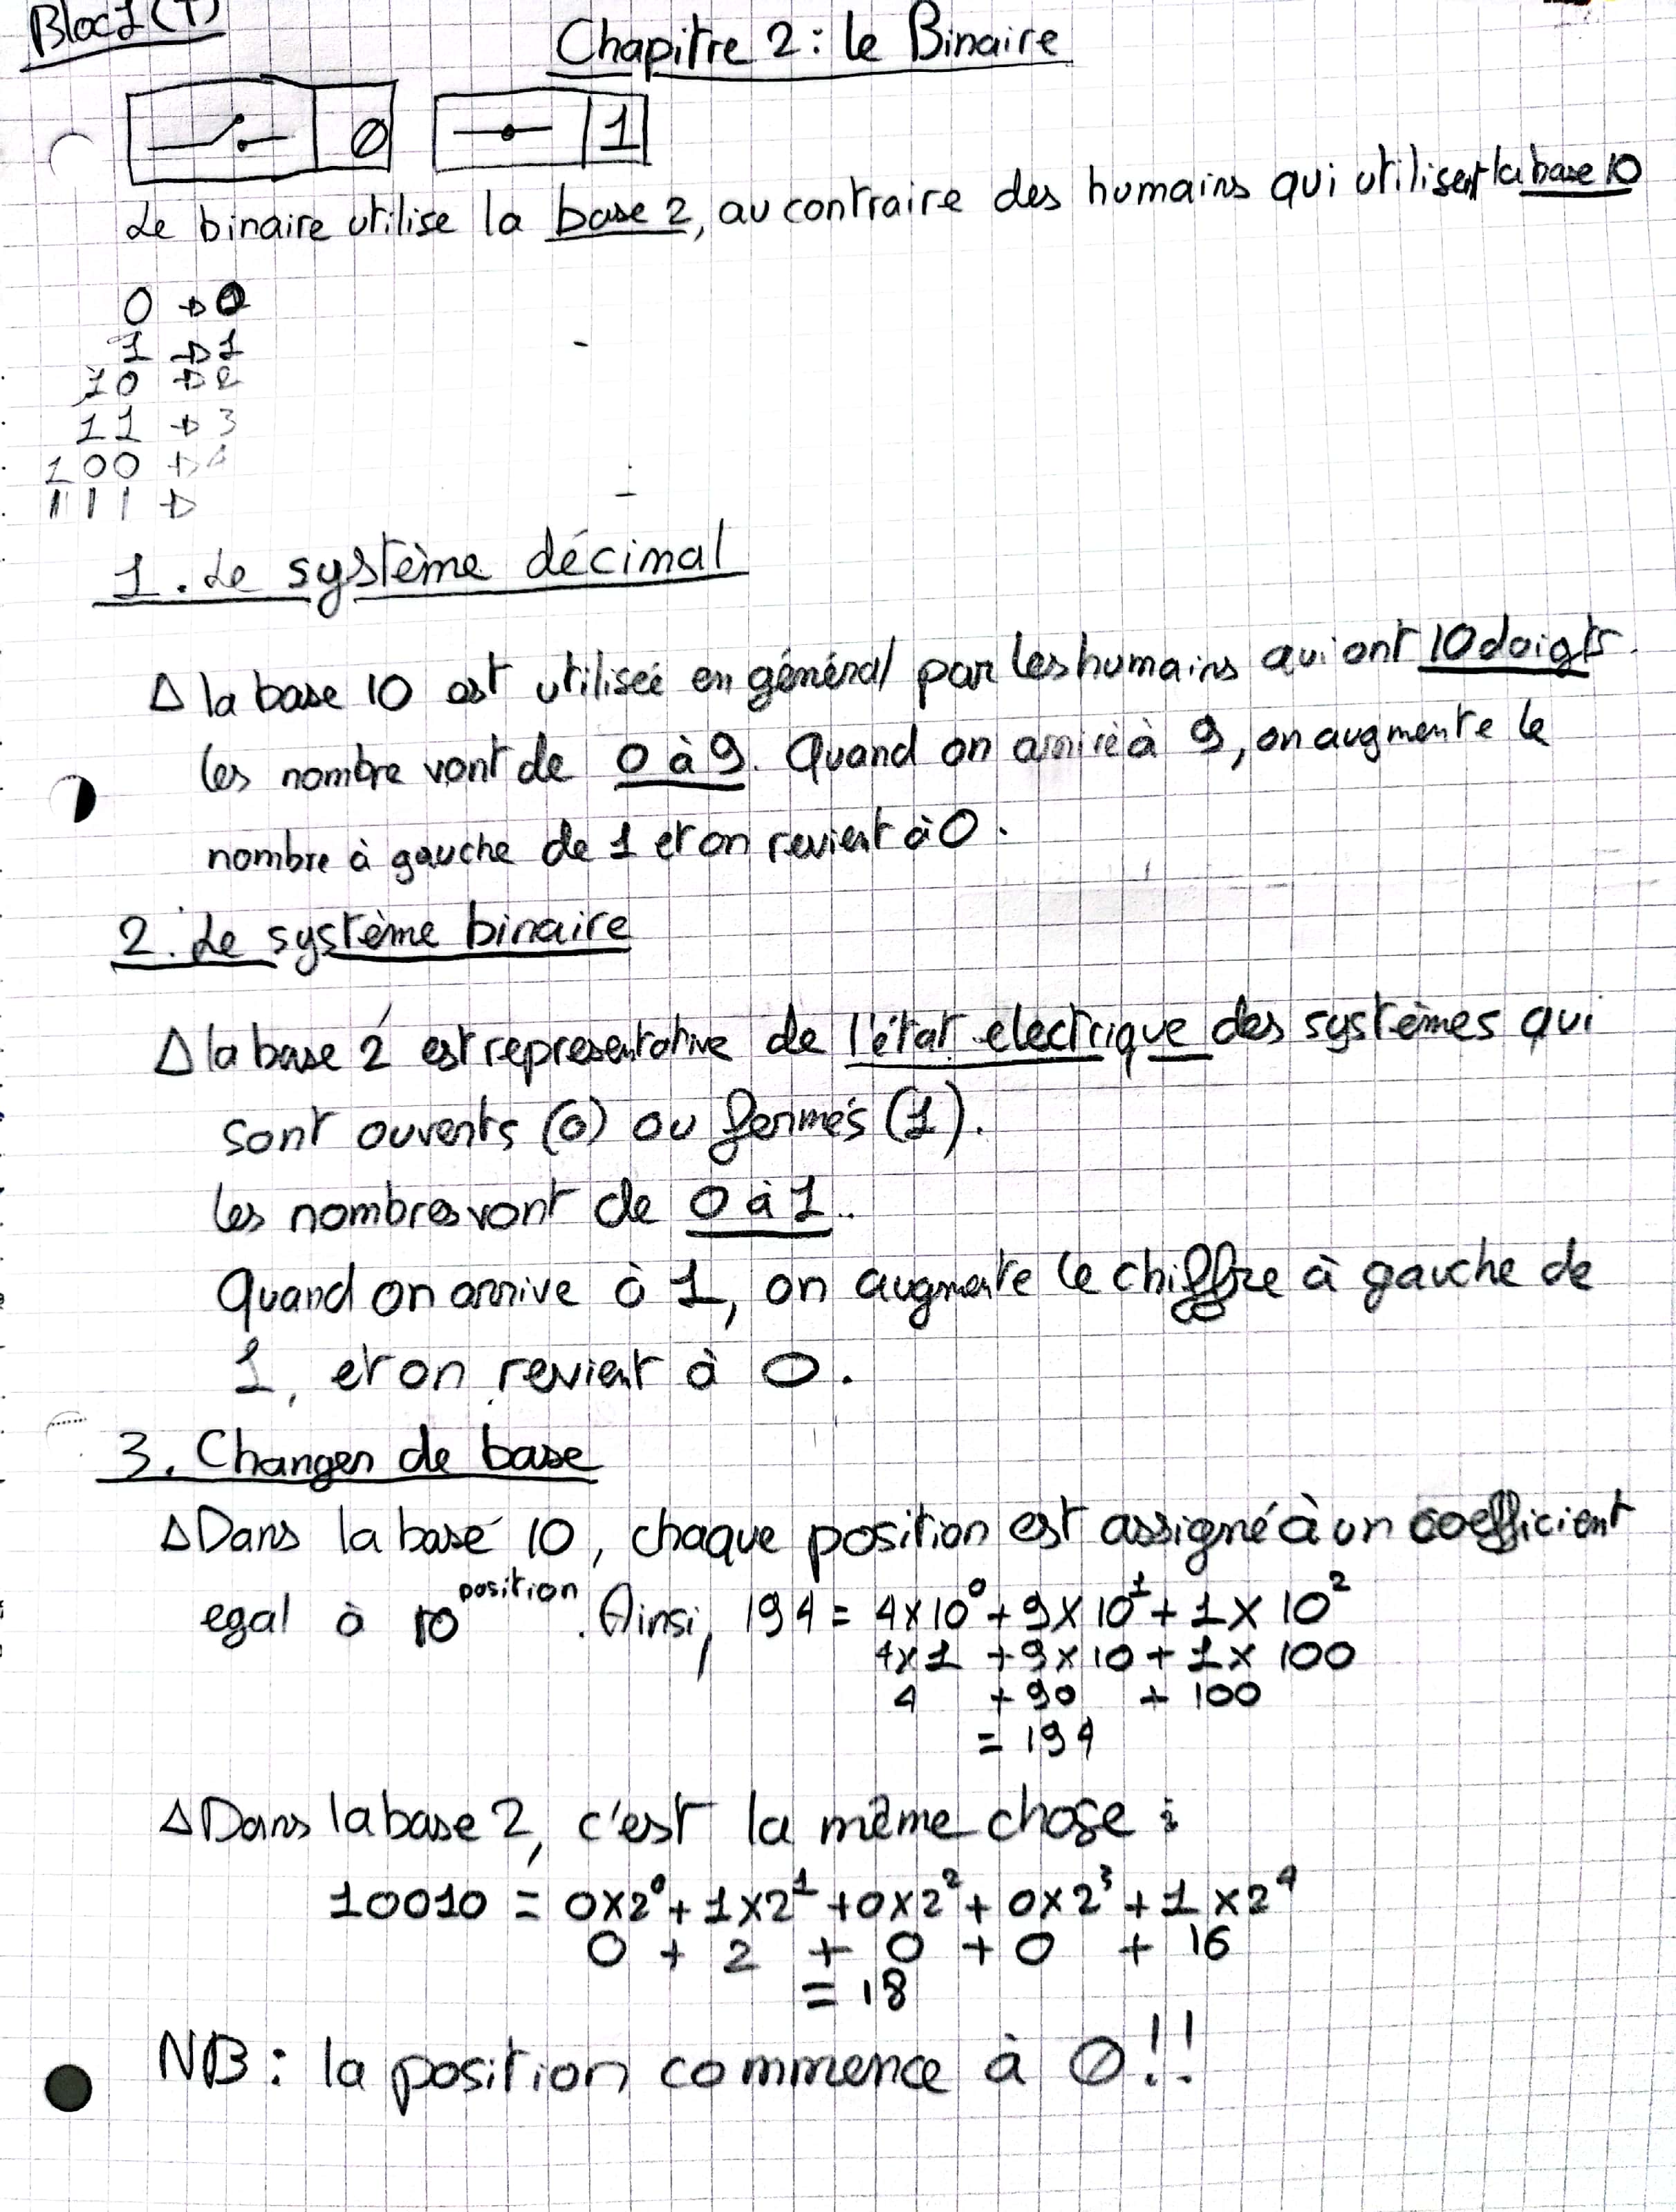 Bloc1 (T)
Chapitre 2 : le Binaire
0 1
Le binaire utilise la base 2, au contraire des humains qui utilisent la base 10
0 → 0
1 → 1
10 → 2
11 → 3
100 → 4
111 →
1. Le système décimal
Δ la base 10 est utilisée en général par les humains qui ont 10 doigts.
les nombre vont de 0 à 9. Quand on arrive à 9, on augmente le
nombre à gauche de 1 et on revient à 0.
2. Le système binaire
Δ la base 2 est representative de l'état electrique des systèmes qui
sont ouverts (0) ou fermés (1).
les nombres vont de 0 à 1..
Quand on arrive à 1, on augmente le chiffre à gauche de
1, et on revient à 0.
3. Changer de base
Δ Dans la base 10, chaque position est assigné à un coefficient
egal à 10^position. Ainsi, 194 = 4×10⁰ + 9×10¹ + 1×10²
4×1 + 9×10 + 1×100
4 + 90 + 100
= 194
Δ Dans la base 2, c'est la même chose :
10010 = 0×2⁰ + 1×2¹ + 0×2² + 0×2³ + 1×2⁴
0 + 2 + 0 + 0 + 16
= 18
NB : la position commence à 0 !!